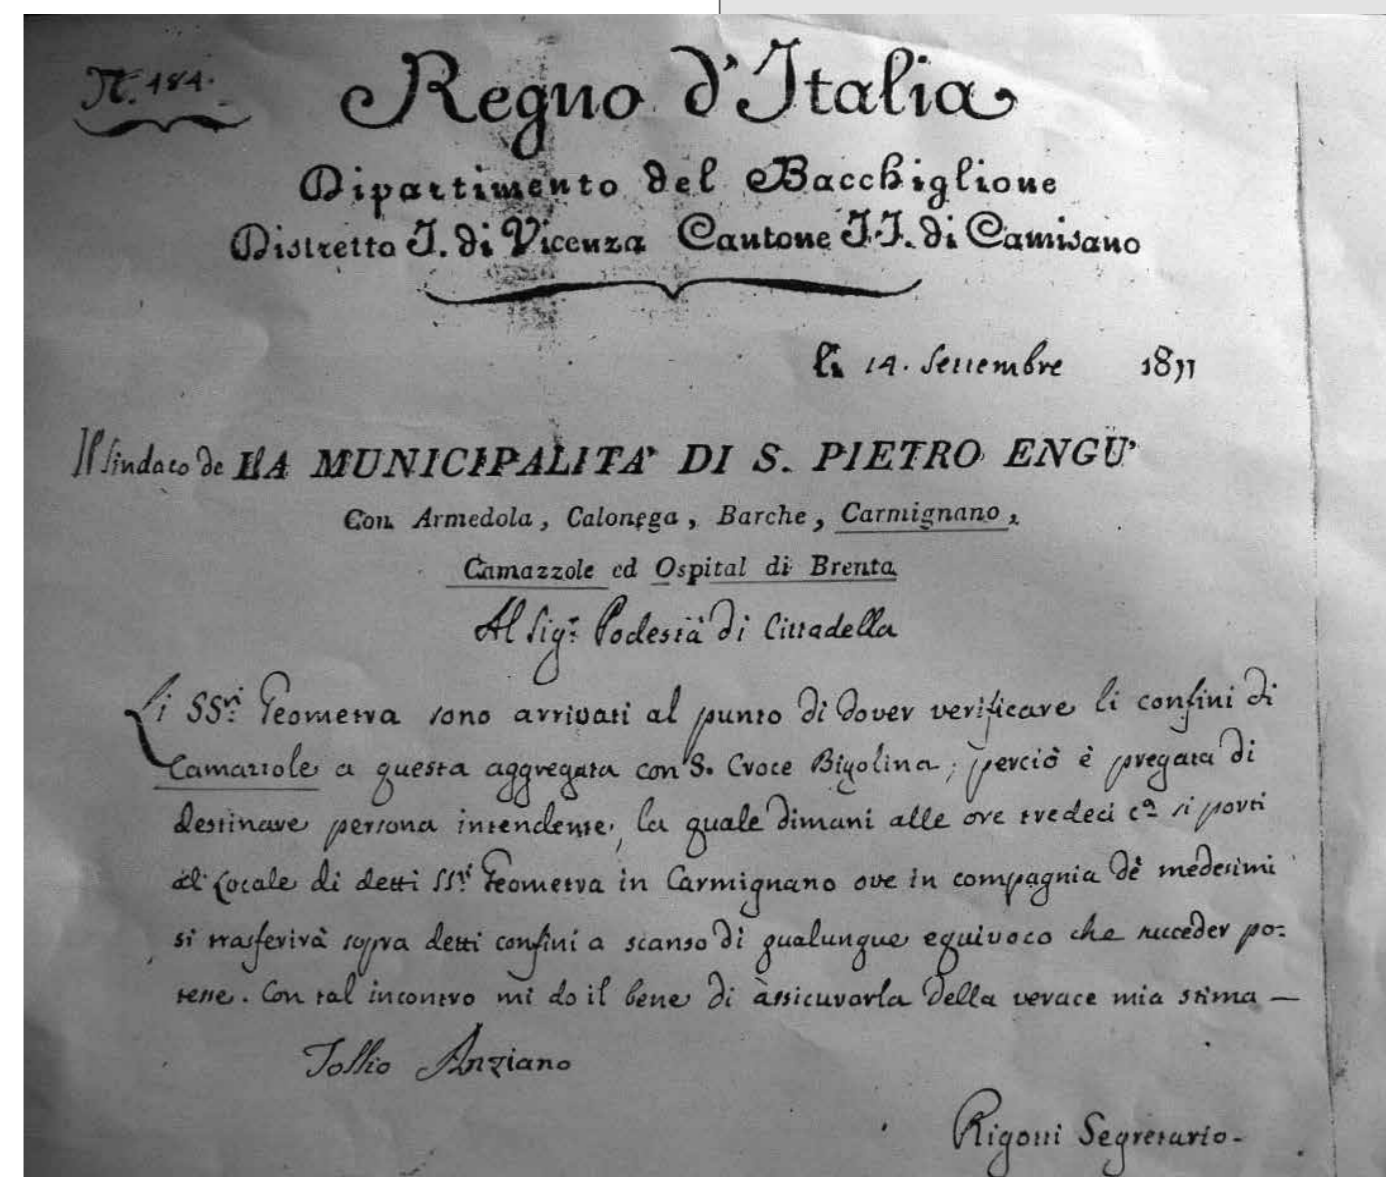 N.º 484.
Regno d'Italia
Dipartimento del Bacchiglione
Distretto I. di Vicenza Cantone II. di Camisano
li 14. Settembre 1811
Il Sindaco de LLA MUNICIPALITA' DI S. PIETRO ENGU'
Con Armedola, Calonega, Barche, Carmignano,
Camazzole ed Ospital di Brenta
Al Sigr. Podestà di Cittadella
Li SSri. Geometra sono arrivati al punto di dover verificare li confini di
Camazzole a questa aggregata con S. Croce Bigolina; perciò è pregata di
destinare persona intendente, la quale dimani alle ore tredeci ca si porti
al Locale di detti SSri. Geometra in Carmignano ove in compagnia de' medesimi
si trasferirà sopra detti confini a scanso di qualunque equivoco che succeder po=
tesse. Con tal incontro mi do il bene di assicurarla della verace mia stima —
Tollio Anziano
Rigoni Segretario-